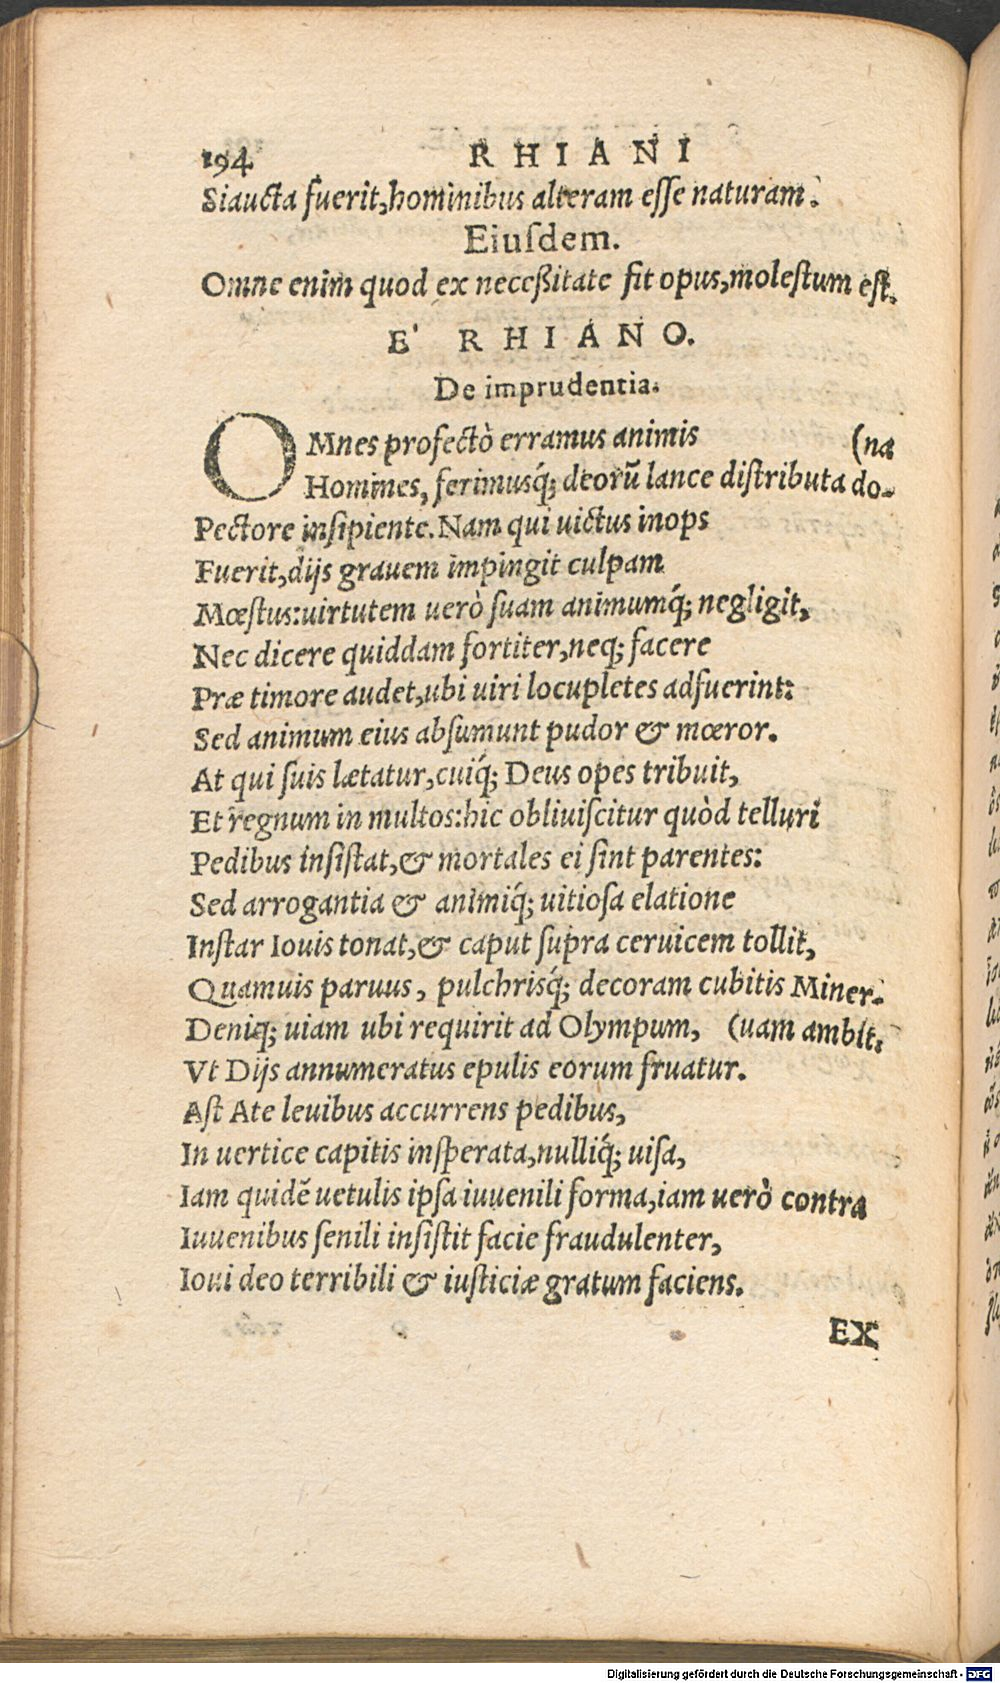 194 RHIANI
Siaucta fuerit, hominibus alteram esse naturam.
Eiusdem.
Omne enim quod ex neceßitate fit opus, molestum est.
E' RHIANO.
De imprudentia.
OMnes profectò erramus animis (na
Homines, ferimusq́; deorũ lance distributa do-
Pectore insipiente. Nam qui uictus inops
Fuerit, dijs grauem impingit culpam
Mœstus: uirtutem uerò suam animumq́; negligit,
Nec dicere quiddam fortiter, neq; facere
Præ timore audet, ubi uiri locupletes adfuerint:
Sed animum eius absumunt pudor & mœror.
At qui suis lætatur, cuiq́; Deus opes tribuit,
Et regnum in multos: hic obliuiscitur quòd telluri
Pedibus insistat, & mortales ei sint parentes:
Sed arrogantia & animiq́; uitiosa elatione
Instar Iouis tonat, & caput supra ceruicem tollit,
Quamuis paruus, pulchrisq́; decoram cubitis Miner-
Deniq; uiam ubi requirit ad Olympum, (uam ambit.
Vt Dijs annumeratus epulis eorum fruatur.
Ast Ate leuibus accurrens pedibus,
In uertice capitis insperata, nulliq́; uisa,
Iam quidẽ uetulis ipsa iuuenili forma, iam uerò contra
Iuuenibus senili insistit facie fraudulenter,
Ioui deo terribili & iusticiæ gratum faciens.
EX
Digitalisierung gefördert durch die Deutsche Forschungsgemeinschaft - DFG